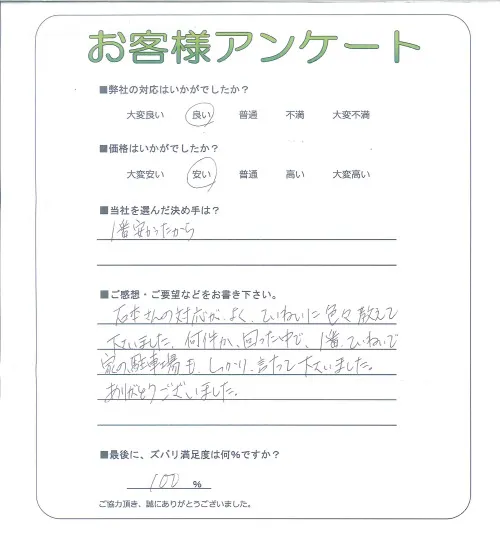 お客様アンケート
■弊社の対応はいかがでしたか？
大変良い 良い 普通 不満 大変不満
■価格はいかがでしたか？
大変安い 安い 普通 高い 大変高い
■当社を選んだ決め手は？
1番安かったから
■ご感想・ご要望などをお書き下さい。
石本さんの対応が、よく、ていねいに色々教えて
下さいました。何件か、回った中で、1番、ていねいで
家の、駐車場も、しっかり、言たって下さいました。
ありがとうございました。
■最後に、ズバリ満足度は何％ですか？
100 %
ご協力頂き、誠にありがとうございました。